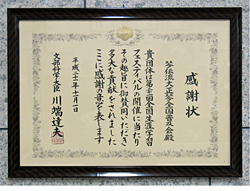 感謝状
琴伝流大正琴全国普及会殿
貴団体は第二十一回全国生涯学習
フェスティバルの開催に当たり
その趣旨に御賛同いただき
多大な貢献をされました
ここに感謝の意を表します
平成二十一年十一月一日
文部科学大臣 川端達夫